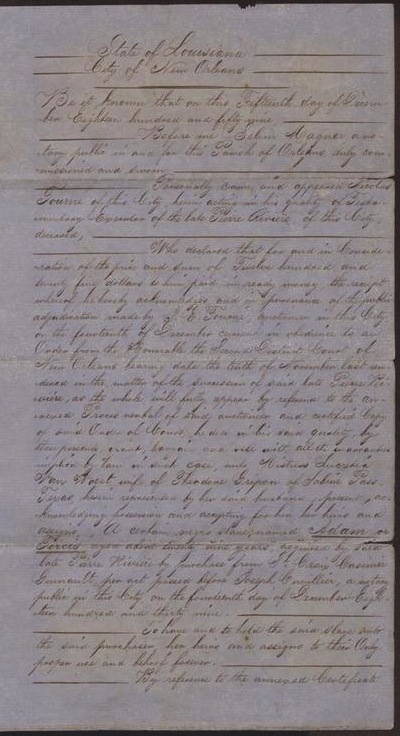 State of Louisiana
City of New Orleans
Be it known that on this Fifteenth day of Decem-
ber Eighteen hundred and fifty nine
Before me Selim Magner a no-
tary public in and for this Parish of Orleans, duly com-
missioned and sworn
Personally came and appeared
of this City herein acting in his quality of Testa-
mentary Executor of the late Pierre Rivière, of this City
deceased,
Who declared that for and in Conside-
ration of the price and sum of Twelve hundred and
five dollars to him paid in ready money the receipt
whereof he hereby acknowledges and in pursuance of the public
adjudication made by auctioneer in this City
on the fourteenth of December current in obedience to an
Order from the Honorable the Second District Court of
New Orleans bearing date the tenth of November last ren-
dered in the matter of the succession of said late Pierre Ri-
vière, as the whole will fully appear by reference to the an-
nexed Proces verbal of said auctioneer and certified Copy
of said Order of Court, he does in his said quality, by
these presents grant, bargain and sell with all the warranties
by law in such case, unto Mistress Lucretia
Van Noert wife of Theodore of Sabine Pass
Texas, herein represented by her said husband, present, ac-
knowledging possession and accepting for her, her heirs and
assigns. A certain negro slave named Adam or
aged about twenty nine years, acquired by said
late Pierre Rivière by purchase from St. Croix Casimir
per act passed before Joseph Cuvillier, a notary
public in this City on the fourteenth day of December Eigh-
teen hundred and thirty nine.
To have and to hold the said slave unto
the said purchaser, her heirs and assigns to their only
proper use and behoof forever.
By reference to the annexed Certificate